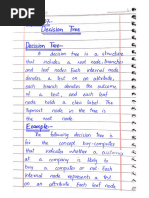 Decision Tree
Decision Tree-
A decision tree is a structure
that includes a root node, branches
and leaf nodes. Each internal node
denotes a test on an attribute,
each branch denotes the outcome
of a test, and each leaf
node holds a class label. The
topmost node in the tree is the
root node.
Example-
The following decision tree is
for the concept buy-computer
that indicates whether a customer
at a company is likely to
buy a computer or not. Each
internal node represents a test
on an attribute. Each leaf node